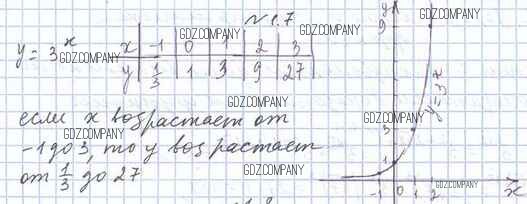 № 1.7
y = 3^x
x | -1 | 0 | 1 | 2 | 3
y | 1/3 | 1 | 3 | 9 | 27
если x возрастает от
-1 до 3, то y возрастает
от 1/3 до 27
y
9
3
1
-1 0 1 2
x
y = 3^x
GDZ.COMPANY
GDZ.COMPANY
GDZ.COMPANY
GDZ.COMPANY
GDZ.COMPANY
GDZ.COMPANY
GDZ.COMPANY
GDZ.COMPANY